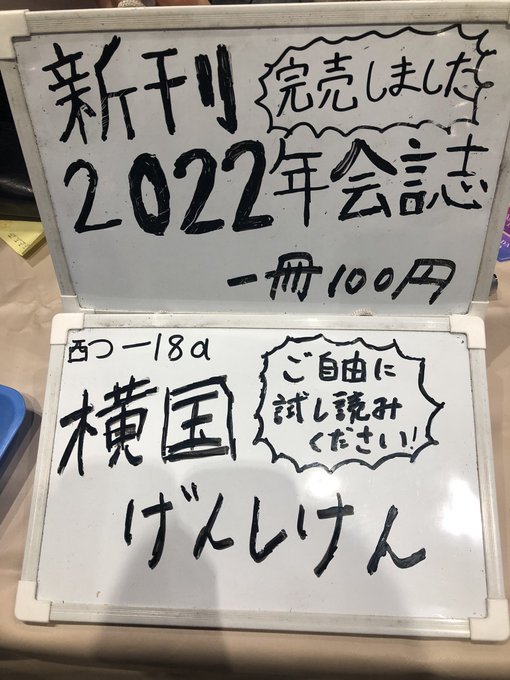 新刊
完売しました
2022年会誌
一冊100円
西つ-18a
横国
ご自由に
試し読み
ください!
げんしけん